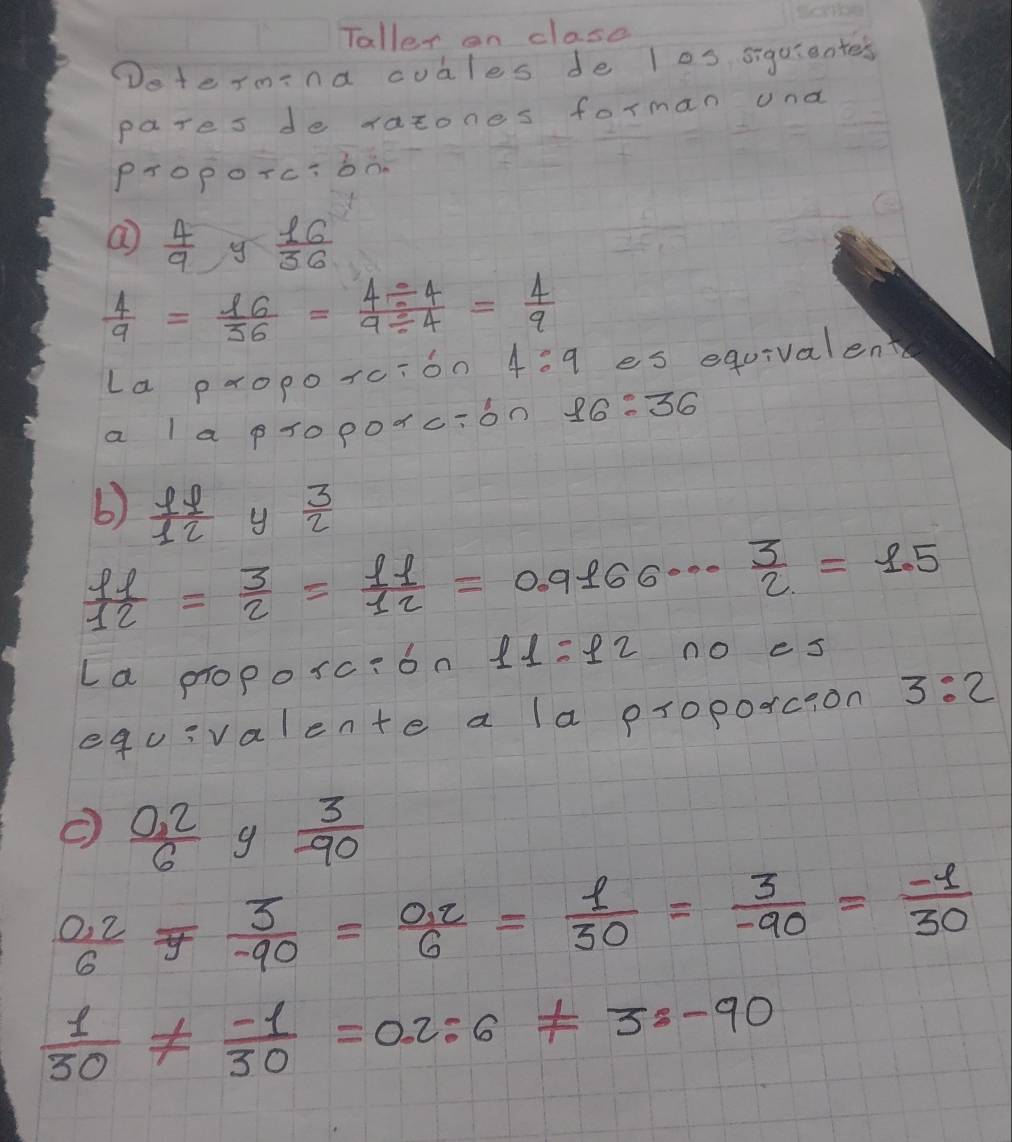 Taller en clase
Determina cuáles de los siguientes
pares de razones forman una
proporción.
a) 4/9 y 16/36
4/9 = 16/36 = 4÷4/9÷4 = 4/9
La proporción 4:9 es equivalente
a la proporción 16:36
b) 11/12 y 3/2
11/12 = 3/2 = 11/12 = 0.9166... 3/2 = 1.5
La proporción 11:12 no es
equivalente a la proporcion 3:2
c) 0,2/6 y 3/-90
0,2/6 = y 3/-90 = 0,2/6 = 1/30 = 3/-90 = -1/30
1/30 ≠ -1/30 = 0.2:6 ≠ 3:-90